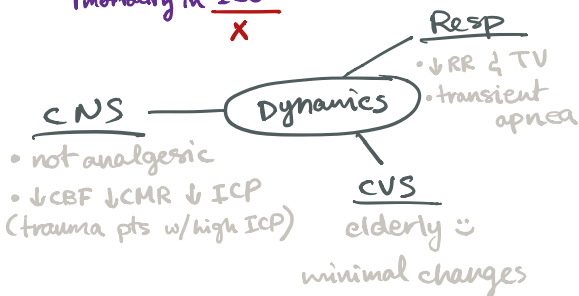 mortality in ICU
X
Resp
• ↓ RR & TV
• transient
apnea
Dynamics
CNS
• not analgesic
• ↓CBF ↓CMR ↓ ICP
(trauma pts w/high ICP)
CVS
elderly :)
minimal changes